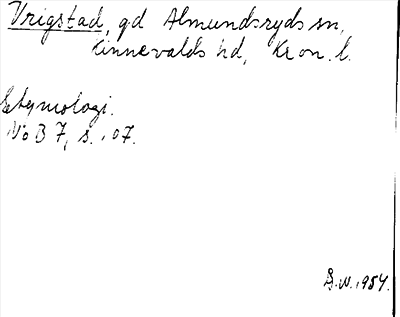 Vrigstad, gd Almundsryds sn,
Kinnevalds hd, Kron. l.
Etymologi.
NoB 7, s. 107.
B.N. 1954.